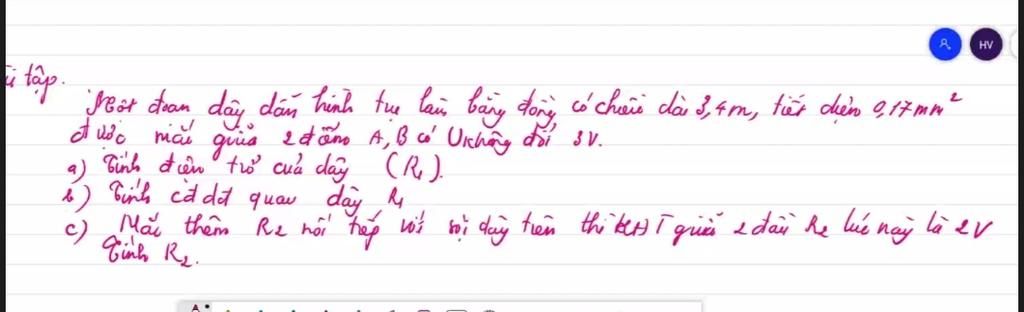 tập.
HV
Một đoạn dây dẫn hình trụ làm bằng đồng có chiều dài 3,4m, tiết diện 0,17mm²
được mắc giữa 2 điểm A, B có U không đổi 3V.
a) Tính điện trở của dây (R₁).
b) Tính cđdđ qua dây R₁
c) Mắc thêm R₂ nối tiếp với sợi dây trên thì HĐT giữa 2 đầu R₂ lúc này là 2V
Tính R₂.